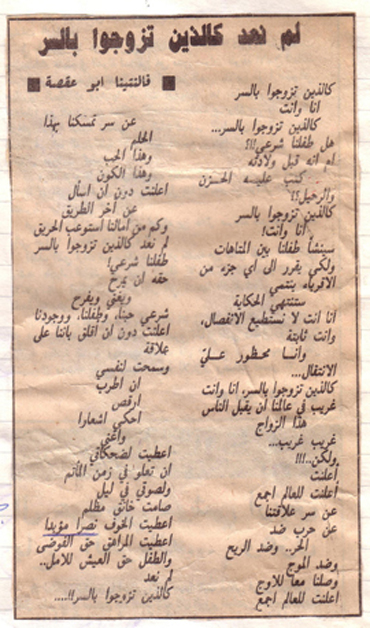 لم نعد كالذين تزوجوا بالسر
فالنتينا ابو عقصة
كالذين تزوجوا بالسر
انا وانت
كالذين تزوجوا بالسر...
هل طفلنا شرعي!!؟
ام انه قبل ولادته
كتب عليه الحزن
والرحيل؟؟
كالذين تزوجوا بالسر
أنا وانت!
سينشأ طفلنا بين المتاهات
ولكي يقرر الى أي جزء من
الاقرباء ينتمي
ستنتهي الحكاية
أنا انت لا نستطيع الانفصال،
وانت ثابتة
وانا محظور علي
الانتقال...
كالذين تزوجوا بالسر، انا وانت
غريب في عالمنا ان يقبل الناس
هذا الزواج
غريب غريب...
ولكن...!!!
أعلنت
أعلنت للعالم اجمع
عن سر علاقتنا
عن حرب ضد
الحر.. وضد الريح
وضد الموج
وصلنا معا للاوج
اعلنت للعالم اجمع
عن سر تمسكنا بهذا
الحلم
وهذا الحب
وهذا الكون
اعلنت دون ان اسأل
عن آخر الطريق
وكم من امالنا استوعب الحريق
لم نعد كالذين تزوجوا بالسر
طفلنا شرعي!
حقه ان يمرح
ويغني ويفرح
شرعي حبنا، وطفلنا، ووجودنا
اعلنت دون ان اقلق باننا على
علاقة
وسمحت لنفسي
ان اطرب
ارقص
احكي اشعارا
واغني
اعطيت لضحكاتي
ان تعلو في زمن المأتم
ولصوتي في ليل
صامت خانق مظلم
اعطيت الخوف نصرا مؤبدا
اعطيت المراهق حق الفوضى
والطفل حق العيش للامل..
لم نعد
كالذين تزوجوا بالسر!!....